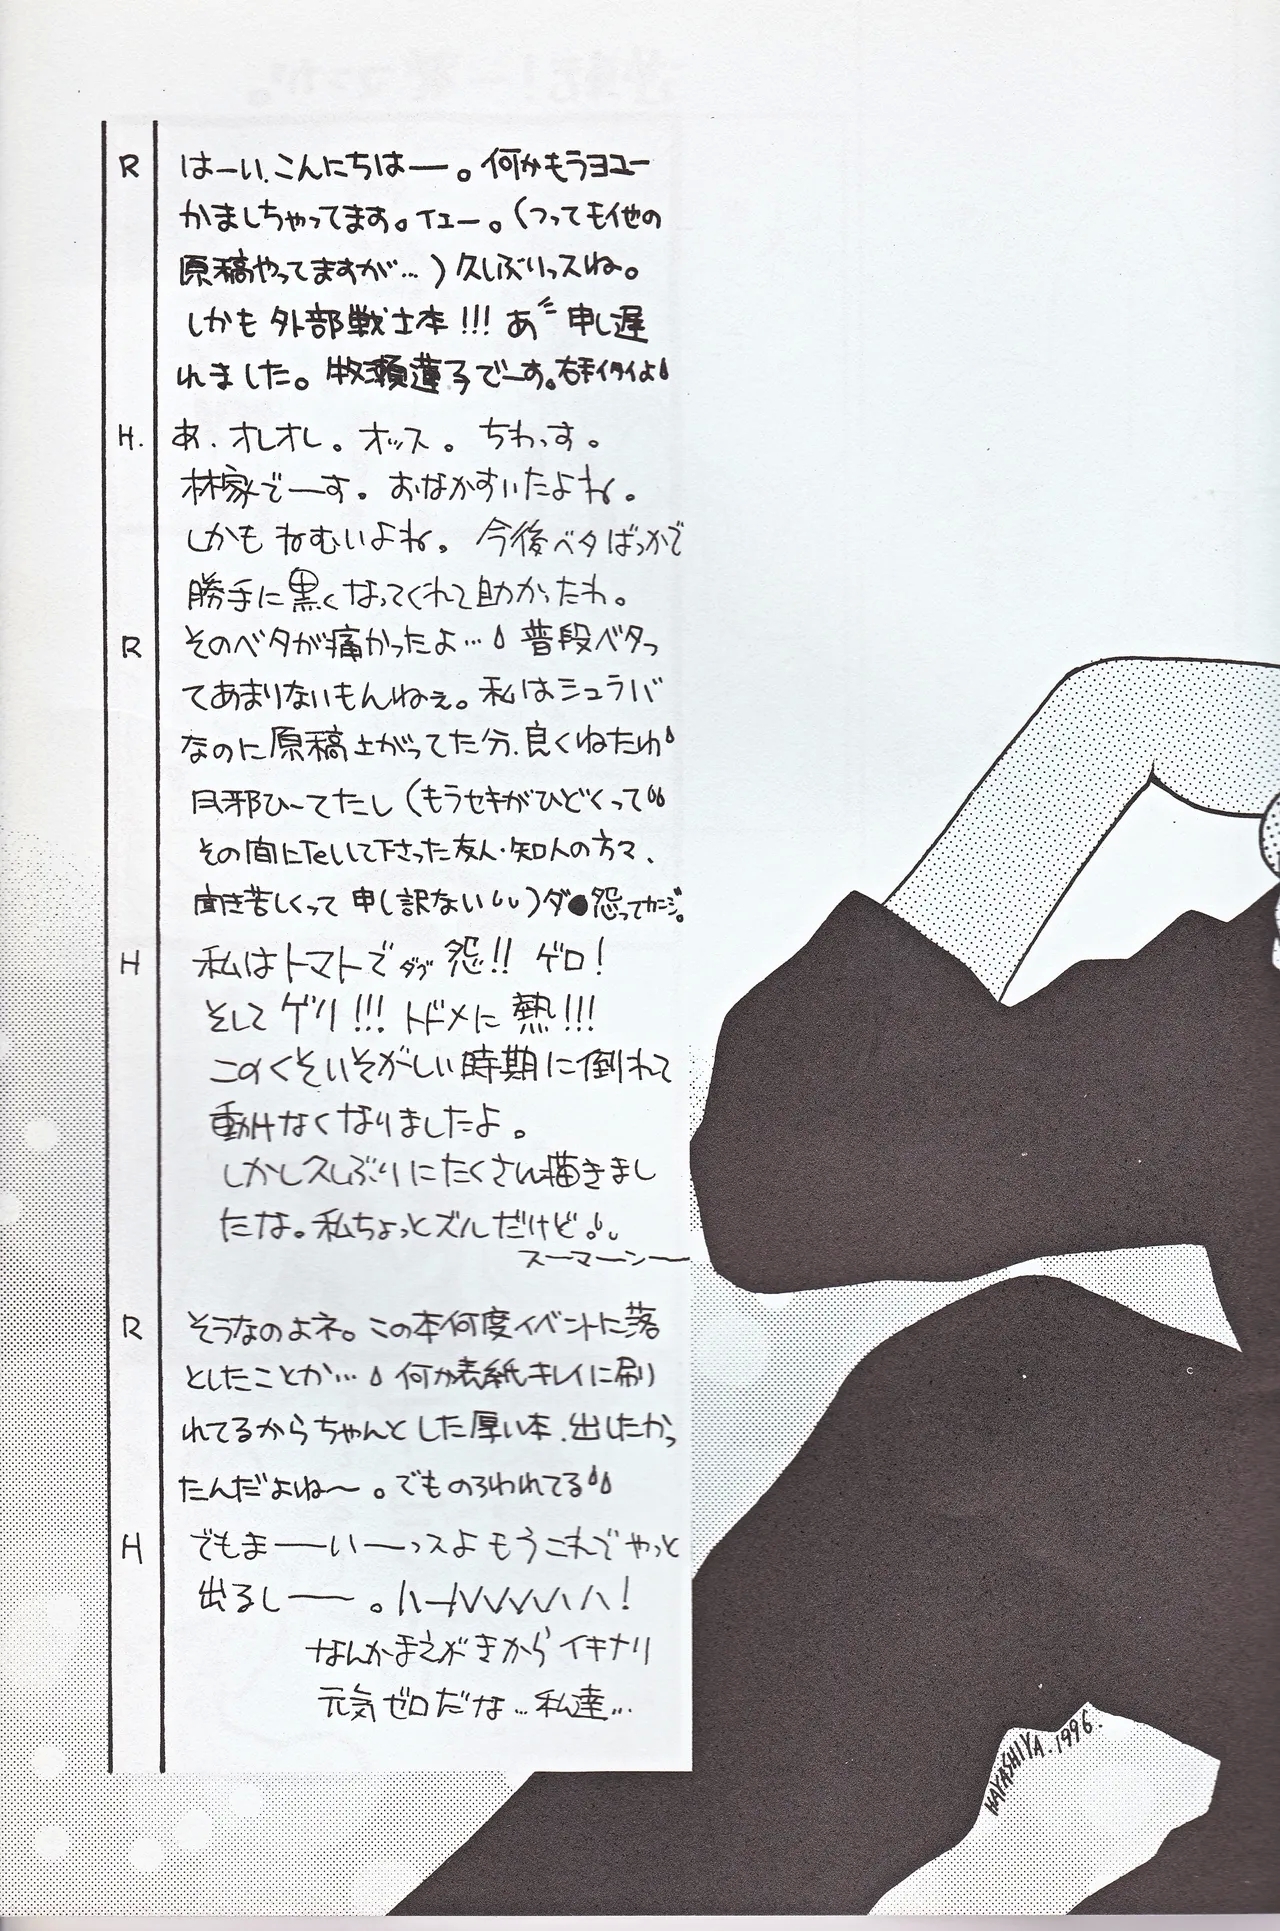 R はーい、こんにちはー。何かもうヨユー
かましちゃってます。イェー。(つっても他の
原稿やってますが…)久しぶりっスね。
しかも外部戦士本!!! あ 申し遅
れました。牧瀬蓮子でーす。右手イタイよ
H. あ、オレオレ。オッス。ちわっす。
林家でーす。おなかすいたよね。
しかもねむいよね。今後ベタばっかで
勝手に黒くなってくれて助かったわ。
R そのベタが痛かったよ… 普段ベタっ
てあまりないもんねぇ。私はシュラバ
なのに原稿上がってた分、良くねたわ
風邪ひーてたし(もうセキがひどくって
その間にTelいて下さった友人・知人の方々、
聞き苦しくって申し訳ない)ダ●怨ってカンジ。
H 私はトマトでダブ怨!! ゲロ!
そしてゲリ!!! トドメに熱!!!
このくそいそがしい時期に倒れて
動けなくなりましたよ。
しかし久しぶりにたくさん描きまし
たな。私ちょっとズルだけど。
スーマーンー
R そうなのよネ。この本何度イベントに落
としたことか… 何か表紙キレイに刷り
れてるからちゃんとした厚い本、出したかっ
たんだよね〜。でものろわれてる
H でもまーーいーーっスよもうこれでやっと
出るしーー。ハーッハッハッハッハ!
なんかまえがきからイキナリ
元気ゼロだな…私達…
HAYASHIYA.1996.